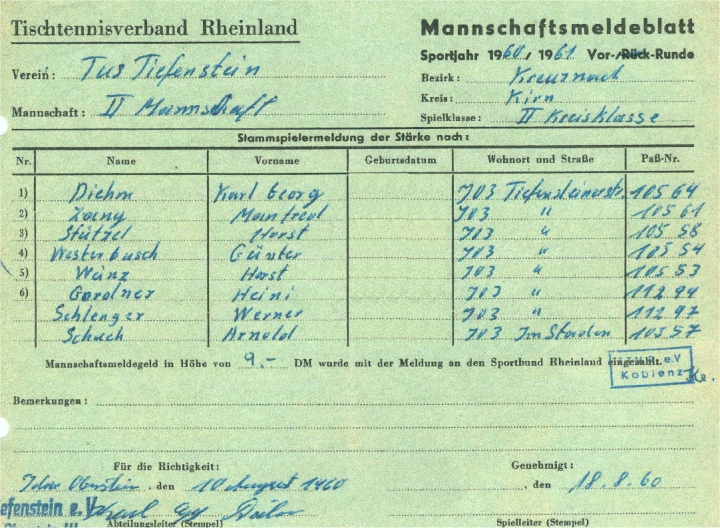 Tischtennisverband Rheinland
Mannschaftsmeldeblatt
Sportjahr 1960 / 1961 Vor-/Rück-Runde
Verein: Tus Tiefenstein
Bezirk: Kreuznach
Kreis: Kirn
Mannschaft: II Mannschaft
Spielklasse: II Kreisklasse
Stammspielermeldung der Stärke nach:
Nr. Name Vorname Geburtsdatum Wohnort und Straße Paß-Nr.
1) Diehm Karl Georg 703 Tiefensteinerstr. 105 64
2) Zang Manfred 703 " 105 61
3) Stützel Horst 703 " 105 58
4) Westerbusch Günter 703 " 105 54
5) Wenz Horst 703 " 105 53
6) Gordner Heini 703 " 112 94
Schlenger Werner 703 " 112 97
Schuch Arnold 703 Im Staden 105 57
Mannschaftsmeldegeld in Höhe von 9.- DM wurde mit der Meldung an den Sportbund Rheinland eingezahlt.
e.V
Koblenz
Bemerkungen:
Für die Richtigkeit:
Genehmigt:
Idar Oberstein, den 10 August 1960
, den 18.8.60
efenstein e.V.
Abteilungsleiter (Stempel)
Spielleiter (Stempel)